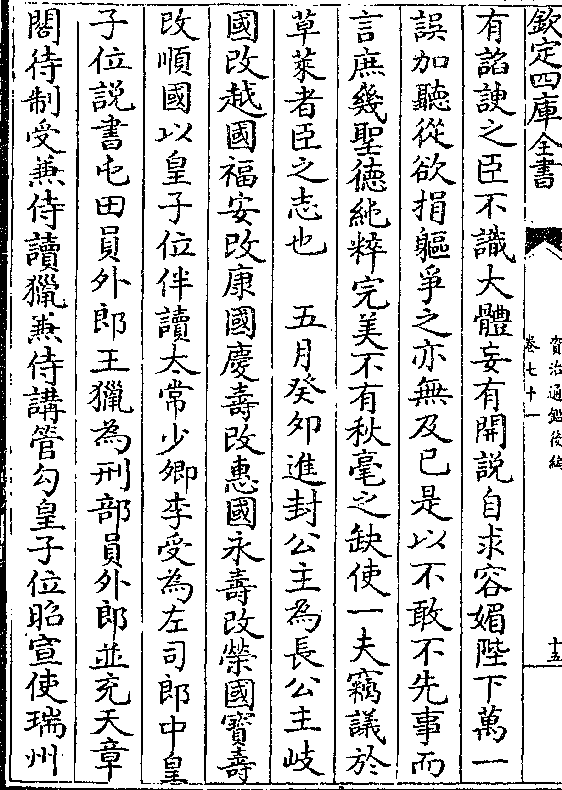 欽定四庫全書
資治通鑑後編
卷七十一
十五
有諂諛之臣不識大體妄有開說自求容媚陛下萬一
誤加聽從欲捐軀爭之亦無及已是以不敢不先事而
言庶幾聖德純粹完美不有秋毫之缺使一夫竊議於
草萊者臣之志也　五月癸夘進封公主為長公主岐
國改越國福安改康國慶壽改惠國永壽改榮國寶壽
改順國以皇子位伴讀太常少卿李受為左司郎中皇
子位說書屯田員外郎王獵為刑部員外郎並充天章
閣待制受兼侍讀獵兼侍講管勾皇子位昭宣使瑞州